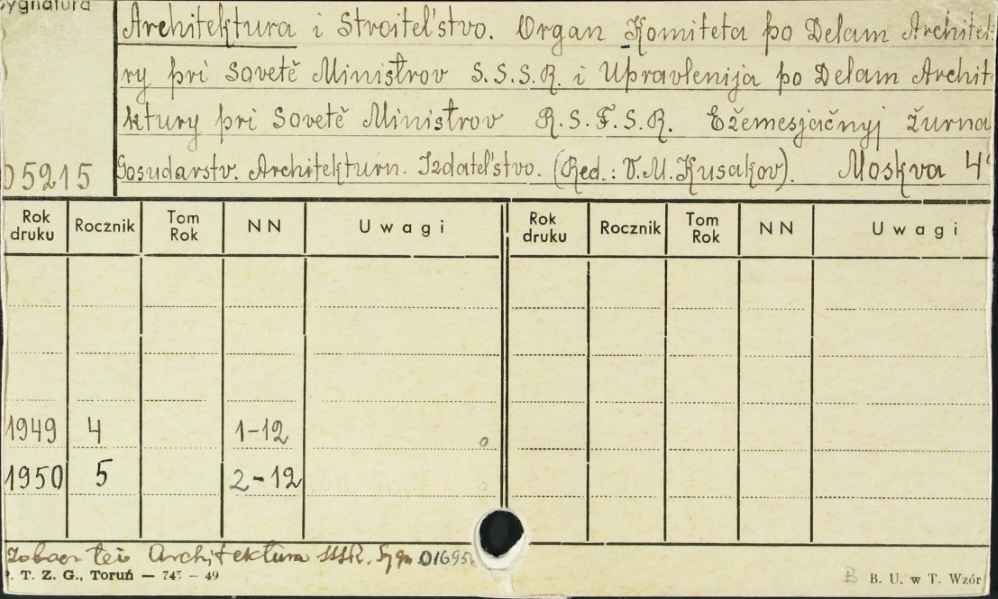 Sygnatura
Architektura i Stroitel'stvo. Organ Komiteta po Delam Architek
ry pri Sovetě Ministrov S.S.S.R. i Upravlenija po Delam Archit
ktury pri Sovetě Ministrov R.S.F.S.R. Ežemesjačnyj žurna
05215 Gosudarstv. Architekturn. Izdatel'stvo. (Red.: V.M. Kusakov). Moskva 4
Rok druku Rocznik Tom Rok NN Uwagi Rok druku Rocznik Tom Rok NN Uwagi
1949 4 1-12
1950 5 2-12
Zobacz też Architektura SSSR. Sygn. 01695
. T. Z. G., Toruń — 745 — 49 B. U. w T. Wzór